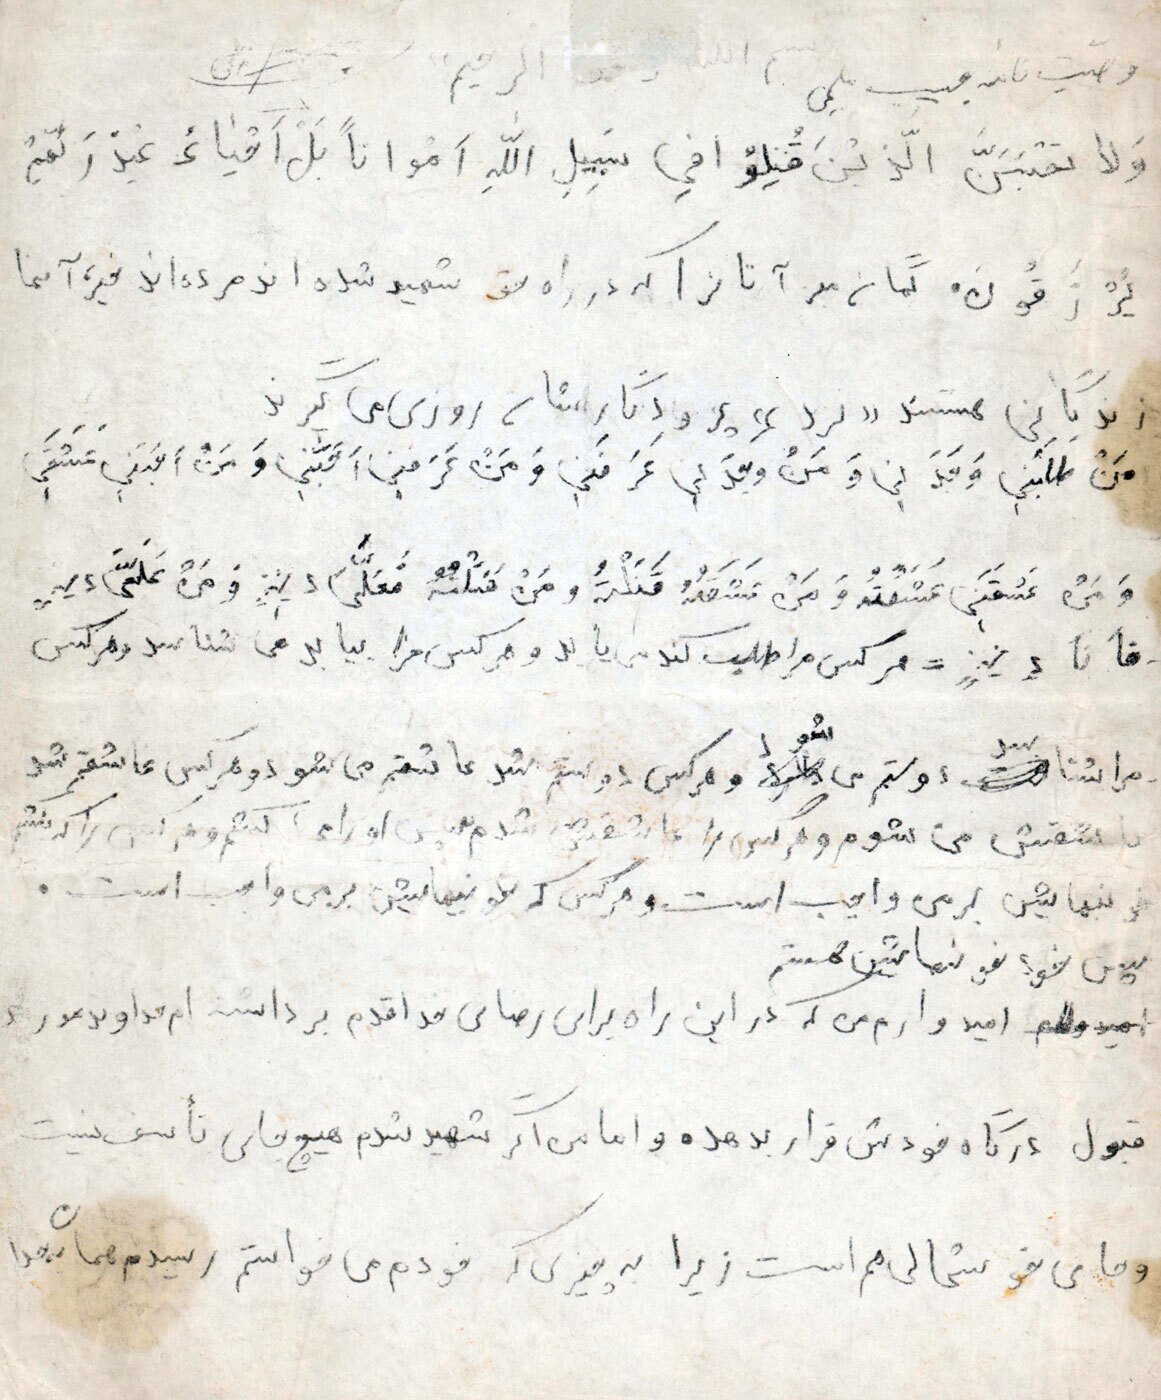 بسم الله الرحیم
وصیت نامه حبیب
وَلا تحسَبَنَّ الَّذینَ قُتِلوُ افیِ سَبِیلِ اللّهِ اَمْواتاً بَلْ اَحْیٰاءُ عِنْدَ رَبِّهِمْ
یُرْزَقُونَ. گمان مبر آنانرا که در راه حق شهید شده اند مرده اند خیر، آنها
زندگانی هستند «نزد پروردگارشان روزی می گیرند
مَنْ طَلَبَنیِ وَجَدَنیِ وَ مَنْ وجَدَنیِ عَرَفَنیِ وَ مَنْ عَرَفَنیِ اَحَبَّنیِ وَ مَنْ اَحَبَنیِ عَشَقَنیِ
وَ مَنْ عَشَقَنیِ عَشَقْتُهُ وَ مَنْ عَشَقْتُهُ قَتَلْتُهُ و مَنْ قَتَلْتُهُ فَعَلَیَّ دِیَتِهِ وَ مَنْ عَلَیَّ دِیَتِهِ
فَاَنَا دِیَتِهِ = هرکس مرا طلب کند می یابد و هرکس مرا بیابد می شناسد وهرکس
مرا شناسد دوستم می شود وهرکس دوستم شد عاشقم می شود وهرکس عاشقم شد
عاشقش می شوم وهرکس را عاشقش شدم پس او را می کشم وهرکس را که کشتم
خونبهایش برمن واجب است وهرکس که خونبهایش برمن واجب است.
پس خود خونبهایش هستم
امیدوارم من که در این راه برای رضای خدا قدم برداشته ام خداوند مورد
قبول درگاه خودش قرار بدهد و اما من اگر شهید شدم هیچ جای تأسف نیست
وجای خوشحالی هم است زیرا به چیزی که خودم می خواستم رسیدم همان بخدا